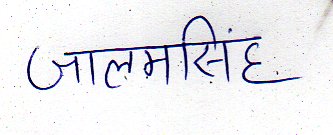 जालमसिंह